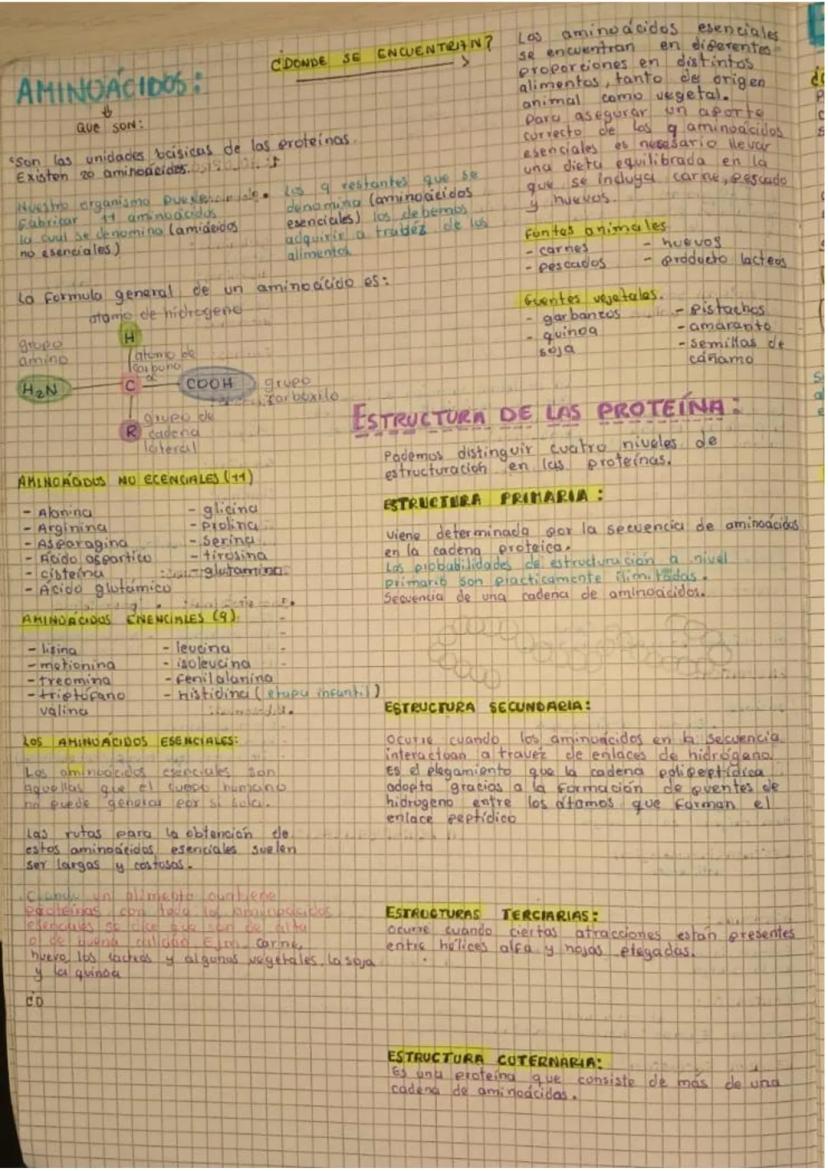 AMINOÁCIDOS:
que son:
Son las unidades básicas de las proteínas.
Existen 20 aminoácidos.
Nuestro organismo puede
fabricar 11 aminoácidos
la cual se denomina (amiácidos
no esenciales)
Los 9 restantes que se
denomina (aminoácidos
esenciales) los debemos
adquirir a trabéz de los
alimentos
La formula general de un aminoácido es:
atomo de hidrogeno
H
grupo
amino
atomo de
carbono
H2N
C
COOH
grupo
carboxilo
R
grupo de
cadena
lateral
AMINOÁCIDOS NO ECENCIALES (11)
- Alanina
- Arginina
- Asparagina
- Ácido aspartico
- cisteína
- Ácido glutámico
- glicina
- prolina
- serina
- tirosina
- glutamina
AMINOÁCIDOS ENENCIALES (9)
- lisina
- metionina
- treomina
- triptófano
valina
- leucina
- isoleucina
- fenilalanina
- histidina (etapa infantil)
LOS AMINOÁCIDOS ESENCIALES:
Los aminoácidos esenciales son
aquellas que el cuerpo humano
no puede generar por sí solo.
Las rutas para la obtención de
estos aminoácidos esenciales suelen
ser largas y costosas.
Cuando un alimento contiene
proteínas con todo los aminoácidos
esenciales se dice que son de alta
o de buena calidad Ejm. carne,
huevo, los lacteos y algunos vegetales. la soja
y la quinoa
¿DONDE SE ENCUENTRAN?
Los aminoácidos esenciales
se encuentran en diferentes
proporciones en distintos
alimentos, tanto de origen
animal como vegetal.
Para asegurar un aporte
correcto de los 9 aminoácidos
esenciales es nesesario llevar
una dieta equilibrada en la
que se incluya carne, pescado
y huevos.
Funtes animales
- carnes
- Pescados
- huevos
- producto lacteos
Fuentes vejetales.
- garbanzos
- quinoa
soja
- Pistachos
- amaranto
- semillas de
cáñamo
ESTRUCTURA DE LAS PROTEÍNA:
Podemos distinguir cuatro niveles de
estructuración en las proteínas.
ESTRUCTURA PRIMARIA:
Viene determinada por la secuencia de aminoácidos
en la cadena proteica.
Las probabilidades de estructuración a nivel
primario son practicamente ilimitadas.
Secuencia de una cadena de aminoácidos.
ESTRUCTURA SECUNDARIA:
ocurre cuando los aminoácidos en la secuencia
interactuan a travez de enlaces de hidrógeno
Es el plegamiento que la cadena polipeptídica
adopta gracias a la formación de puentes de
hidrogeno entre los átomos que forman el
enlace peptídico
ESTRUCTURAS TERCIARIAS:
ocurre cuando ciertas atracciones están presentes
entre hélices alfa y hojas plegadas.
ESTRUCTURA CUTERNARIA:
Es una proteína que consiste de más de una
cadena de aminoácidos.